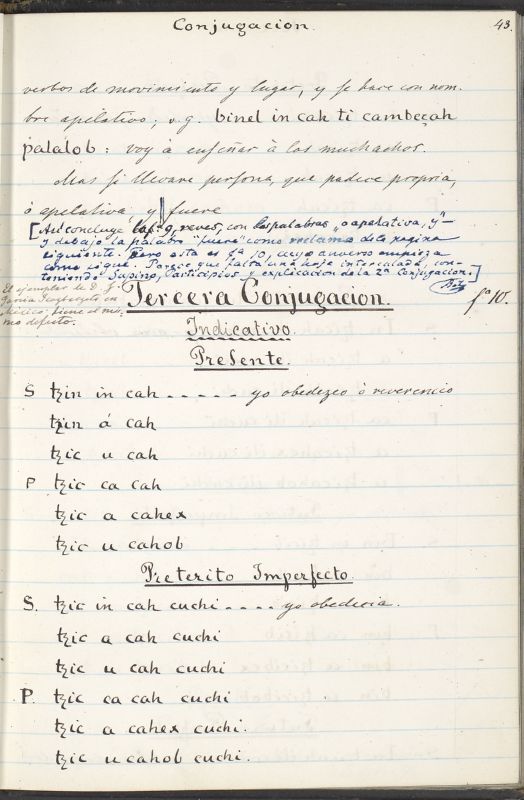 Conjugacion.
43.
verbos de movimiento y lugar, y se hace con nom-
bre apelativo; v.g. binel in cah ti cambeçah
palalob: voy à enseñar à los muchachos.
Mas si llevare persona, que padece propria,
ò apelativa, y fuere
[Así concluye la pª 9, reves, con las palabras "o apelativa, y"
y debajo la palabra "fuere" como reclamo de la pagina
siguiente. Pero esta es fª 10, cuyo anverso empieza
como sigue. Parece que falta una hoja intercalada, con-
teniendo Supino, Participios y explicacion de la 2ª Conjugacion.]
El ejemplar de D. J.
Garcia Icazbalceta en
Mexico, tiene el mis-
mo defecto.
Tercera Conjugacion.
fº 10.
Indicativo.
Presente
S tzin in cah - - - - - yo obedezco ò reverencio
tzin á cah
tzic u cah
P tzic ca cah
tzic a cahex
tzic u cahob
Preterito Imperfecto.
S. tzic in cah cuchi - - - - yo obedecia.
tzic a cah cuchi
tzic u cah cuchi
P. tzic ca cah cuchi
tzic a cahex cuchi.
tzic u cahob cuchi.